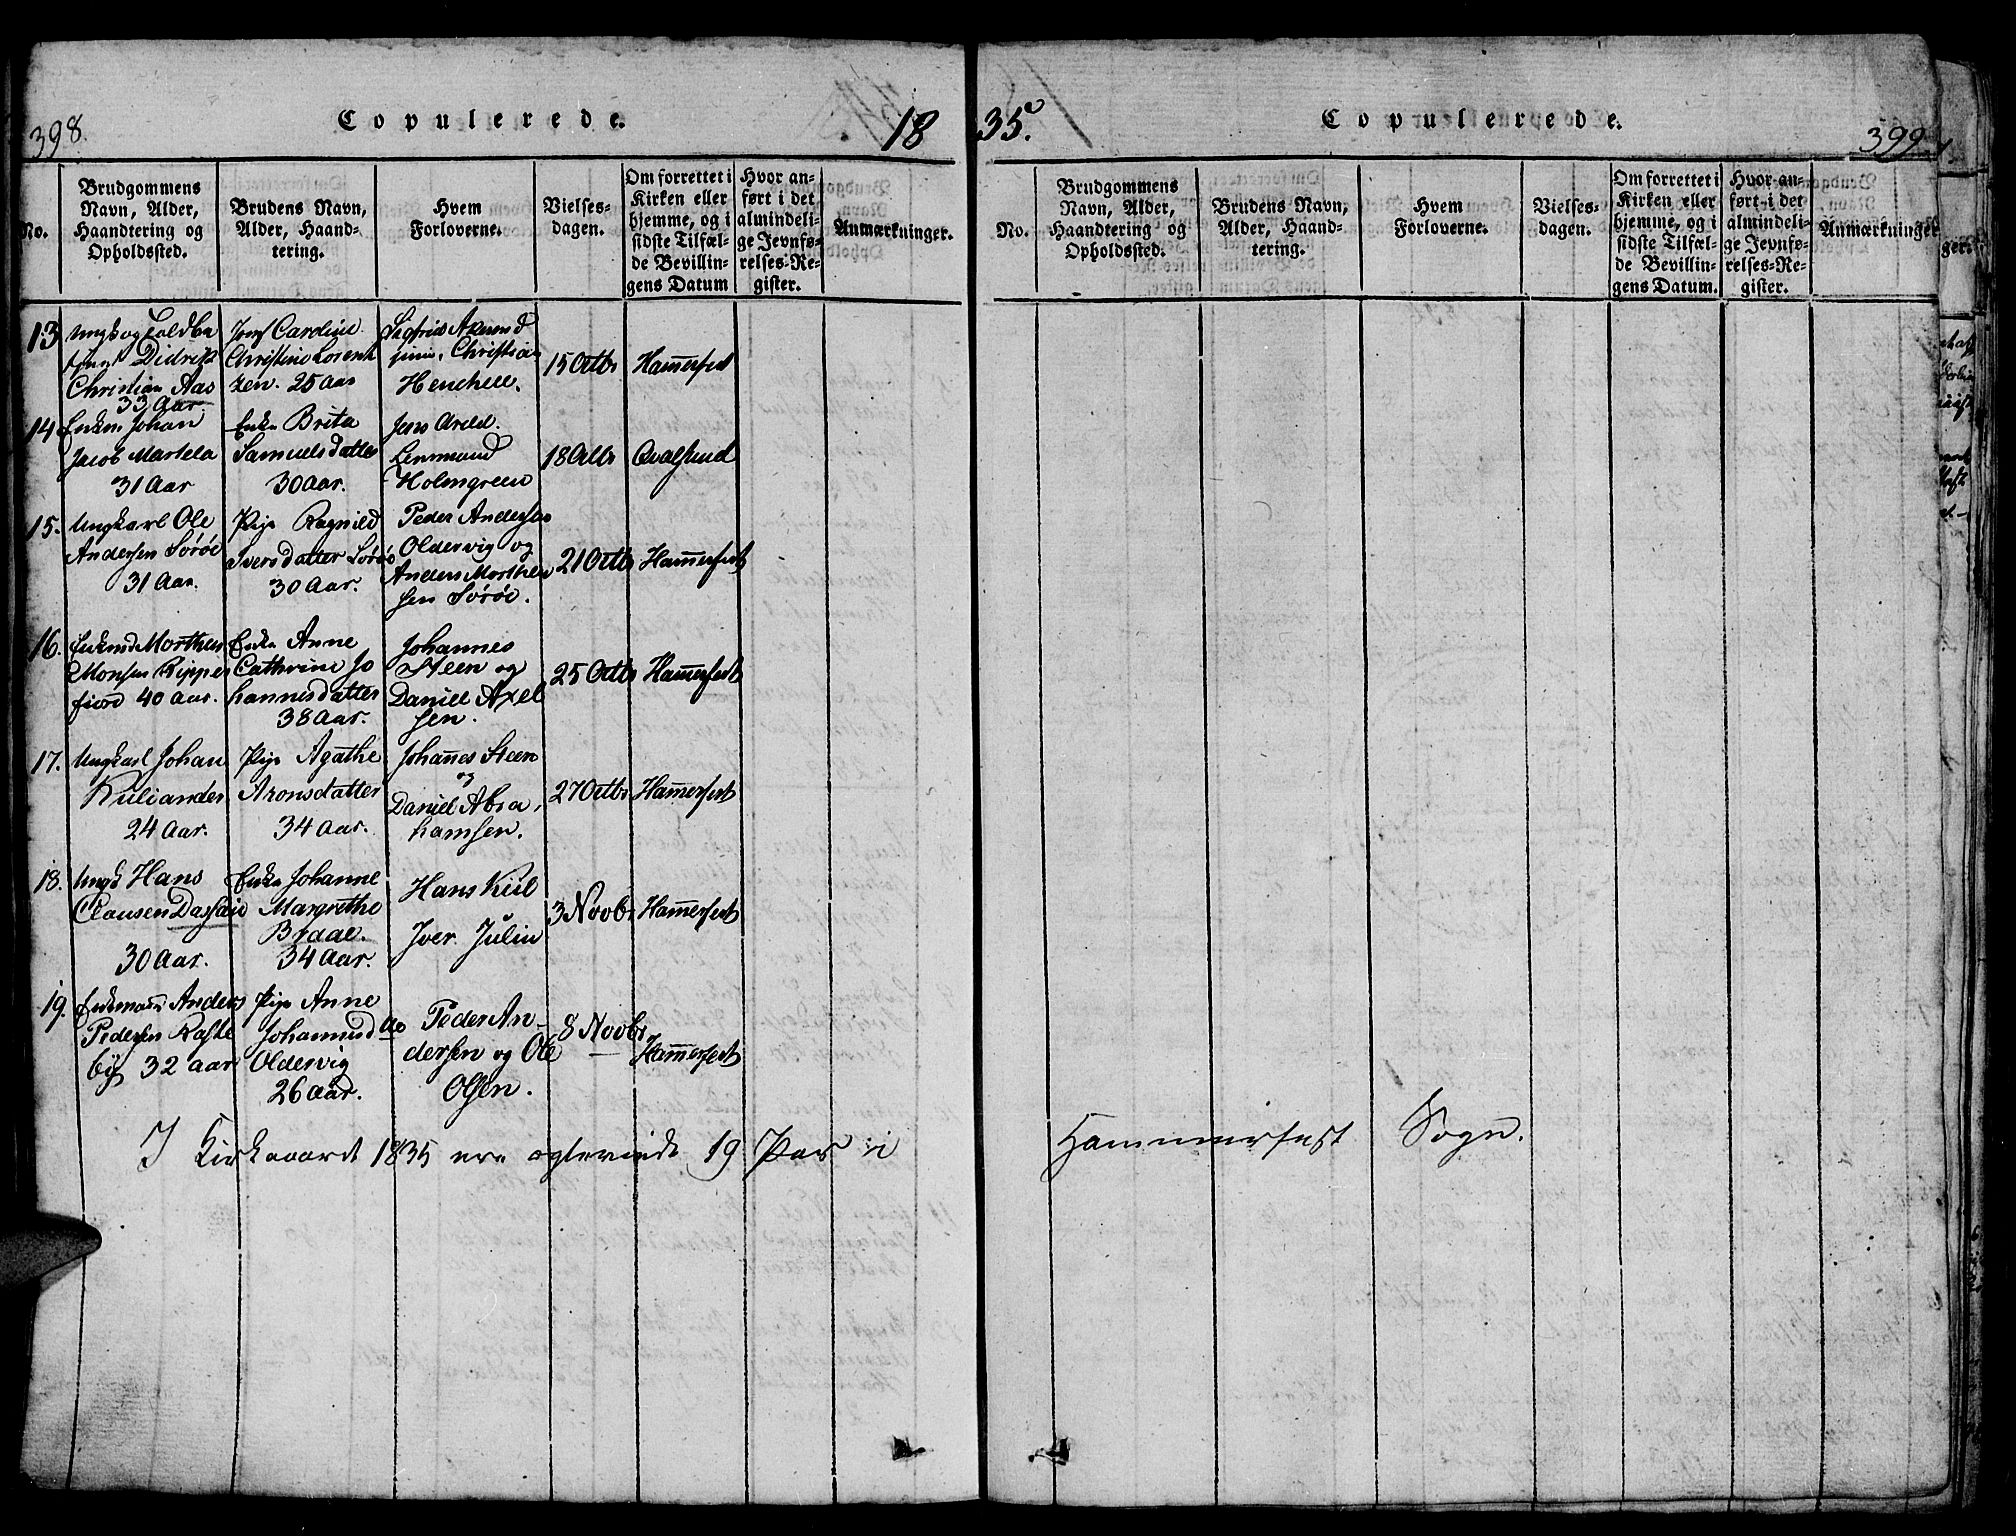 398.
Copulerede.
18
No.
Brudgommens Navn, Alder, Haandtering og Opholdssted.
Brudens Navn, Alder, Haandtering.
Hvem Forloverne.
Vielses-dagen.
Om forrettet i Kirken eller hjemme, og i sidste Tilfælde Bevillingens Datum
Hvor anført i det almindelige Jevnførelses-Register.
Anmærkninger.
13
Ungk og Toldbe
tjent Didrik
Christian Aas
33 Aar.
Jomf Cardine
Christine Lorent
zen. 25 Aar
Sigfrid Akermd
junr. Christian
Henckell.
15 Octbr
Hamerfest
14
Enkm Johan
Jacob Martela
31 Aar
Enke Brita
Samuelsdatter
30 Aar.
Jens Areld.
Lenmand
Holmgreen
18 Octbr
Qvalsund
15.
Ungkarl Ole
Andersen Sørøe
31 Aar.
Pige Ragnild
Iversdatter Sørøe
30 Aar.
Peder Andersen
Oldervig og
Anders Morthen
sen Sørøe.
21 Octbr
Hamerfest
16.
Enkmd Morthen
Monsen Ripper
fiord 40 Aar.
Enke Anne
Cathrine Jo
hannesdatter
38 Aar.
Johannes
Steen og
Daniel Axel
sen.
25 Octbr
Hamerfest
17.
Ungkarl Johan
Kuliander
24 Aar.
Pige Agathe
Aronsdatter
34 Aar.
Johanes Steen
og
Daniel Abra,
hamsen.
27 Octbr
Hamerfest
18.
Ungk Hans
Clausen Dassaie
30 Aar.
Enke Johanne
Margrethe
Braae.
34 Aar.
Hans Kiil
Iver Julin
3 Novbr
Hamerfest
19.
Enkmañ Anders
Pedersen Kaste
by 32 aar
Pige Anne
Johannesd do
Oldervig
26 Aar.
Peder An-
dersen og Ole
Olsen.
8 Novbr
Hamerfest
I Kirkeaaret 1835 ere egteviede 19 Par i
35.
Copulerede.
399
No.
Brudgommens Navn, Alder, Haandtering og Opholdssted.
Brudens Navn, Alder, Haandtering.
Hvem Forloverne.
Vielses-dagen.
Om forrettet i Kirken eller hjemme, og i sidste Tilfælde Bevillingens Datum.
Hvor anført i det almindelige Jevnførelses-Register.
Anmærkninger
Hammerfest Sogn.